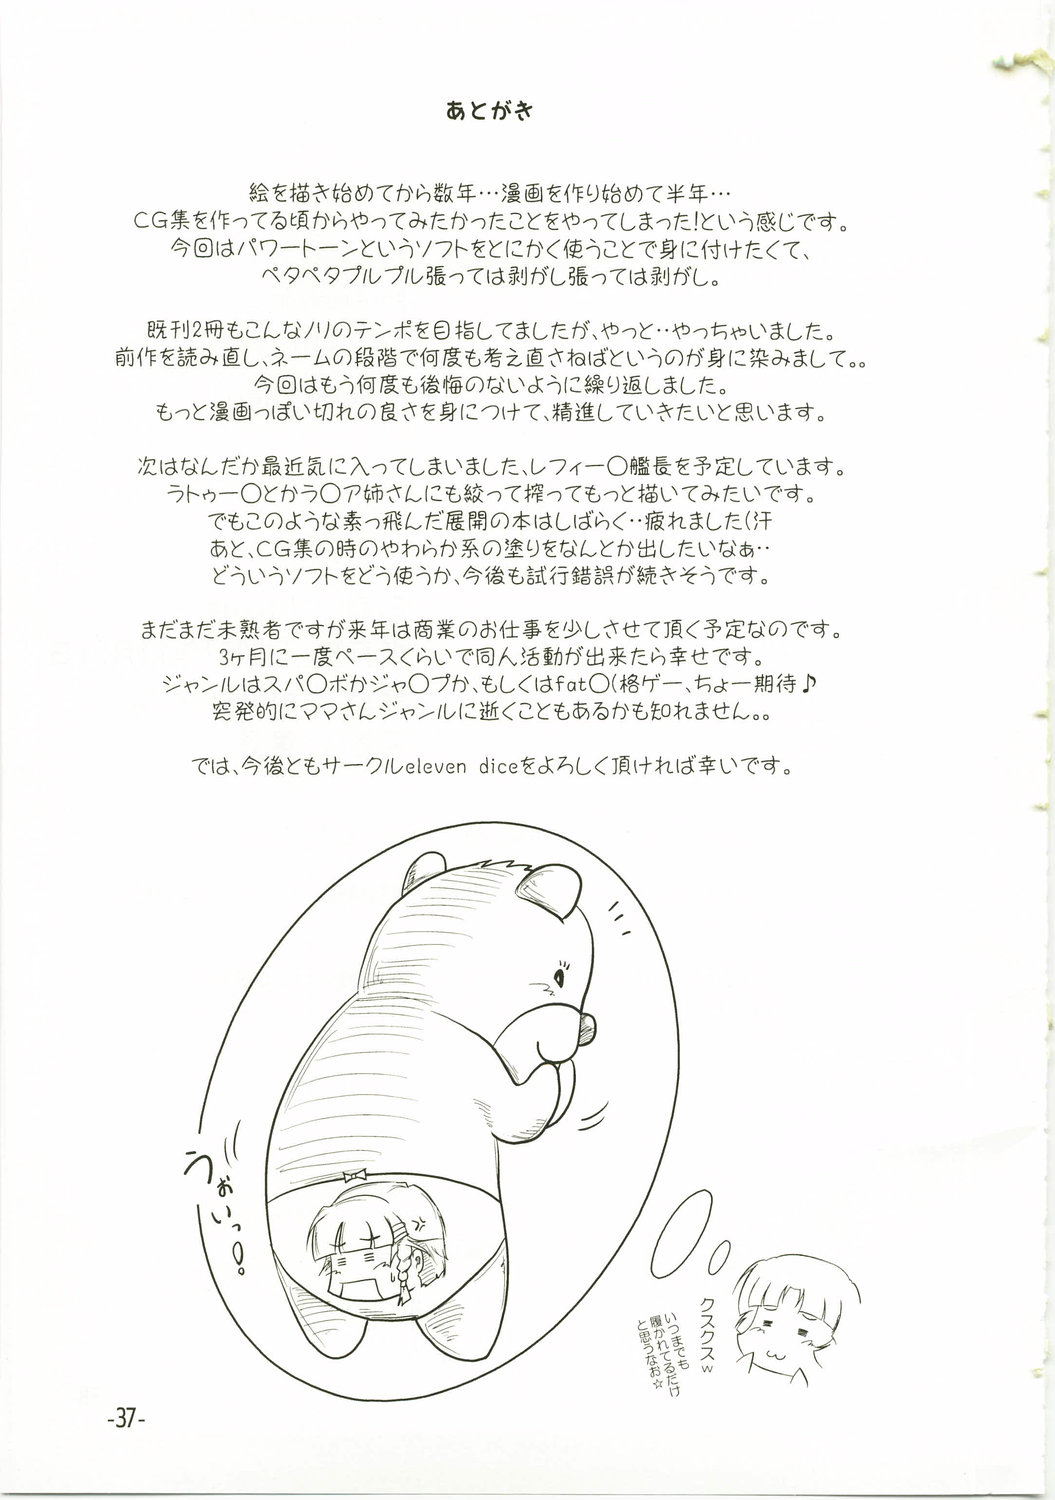 あとがき
絵を描き始めてから数年…漫画を作り始めて半年…
CG集を作ってる頃からやってみたかったことをやってしまった！という感じです。
今回はパワートーンというソフトをとにかく使うことで身に付けたくて、
ペタペタプルプル張っては剥がし張っては剥がし。
既刊2冊もこんなノリのテンポを目指してましたが、やっと‥やっちゃいました。
前作を読み直し、ネームの段階で何度も考え直さねばというのが身に染みまして。。
今回はもう何度も後悔のないように繰り返しました。
もっと漫画っぽい切れの良さを身につけて、精進していきたいと思います。
次はなんだか最近気に入ってしまいました、レフィー〇艦長を予定しています。
ラトゥー〇とかラ〇ア姉さんにも絞って搾ってもっと描いてみたいです。
でもこのような素っ飛んだ展開の本はしばらく‥疲れました(汗
あと、CG集の時のやわらか系の塗りをなんとか出したいなぁ‥
どういうソフトをどう使うか、今後も試行錯誤が続きそうです。
まだまだ未熟者ですが来年は商業のお仕事を少しさせて頂く予定なのです。
3ヶ月に一度ペースくらいで同人活動が出来たら幸せです。
ジャンルはスパ〇ボかジャ〇プか、もしくはfat〇(格ゲー、ちょー期待♪
突発的にママさんジャンルに逝くこともあるかも知れません。。
では、今後ともサークルeleven diceをよろしく頂ければ幸いです。
うぉいっ。
クスクスw
いつまでも
履かれてるだけ
と思うなお☆
-37-